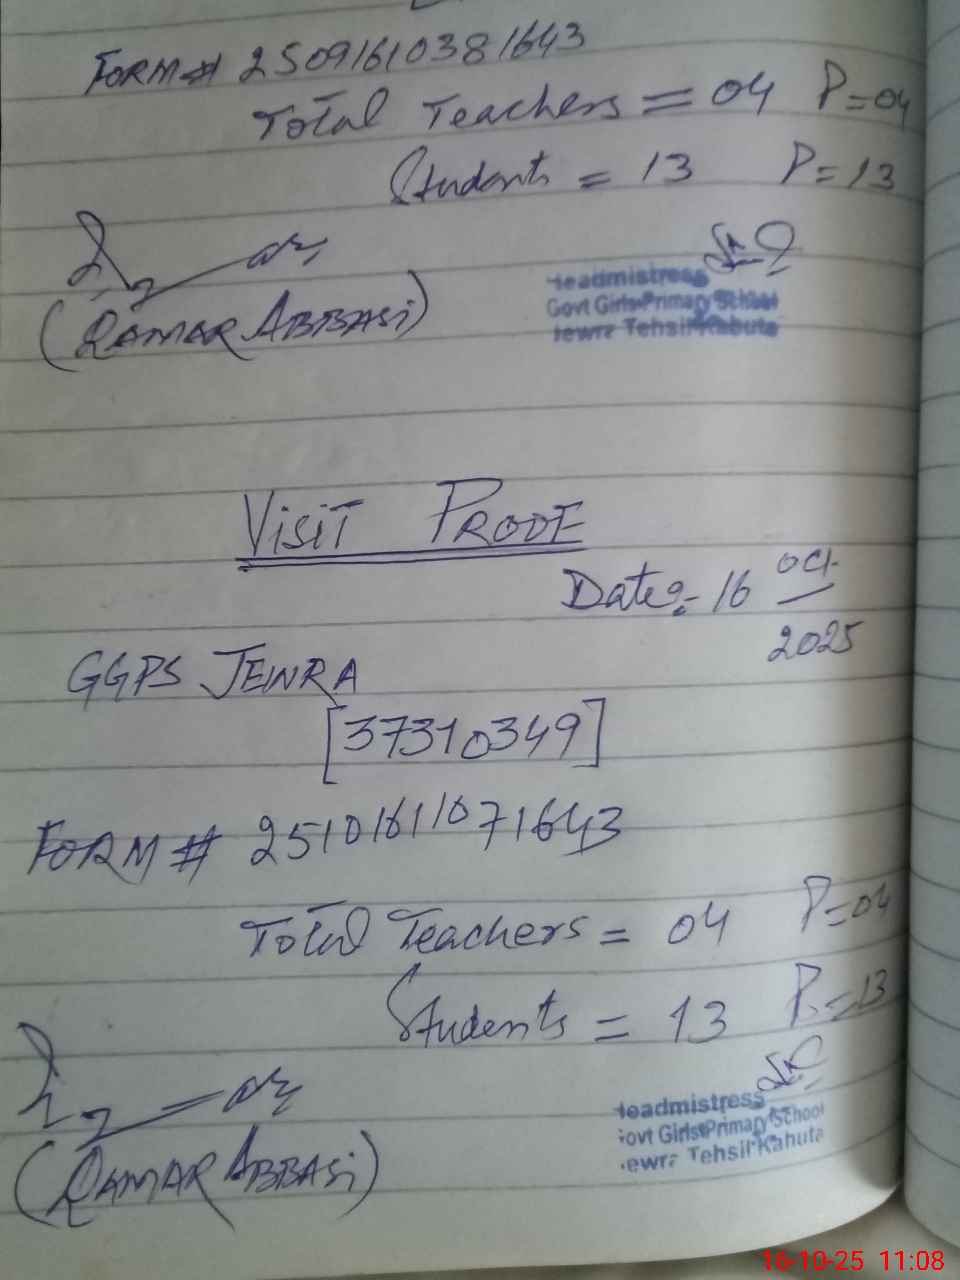 FORM # 2509161038 1643
Total Teachers = 04 P=04
Students = 13 P=13
(QAMAR ABBASi)
Headmistress
Govt Girls Primary School
Jewra Tehsil Kahuta
VISIT PROOF
Date:- 16 Oct
2025
GGPS JEWRA
[37310349]
FORM # 2510161107 1643
Total Teachers = 04 P=04
Students = 13 P=13
(QAMAR ABBASi)
Headmistress
Govt Girls Primary School
Jewra Tehsil Kahuta
16-10-25 11:08